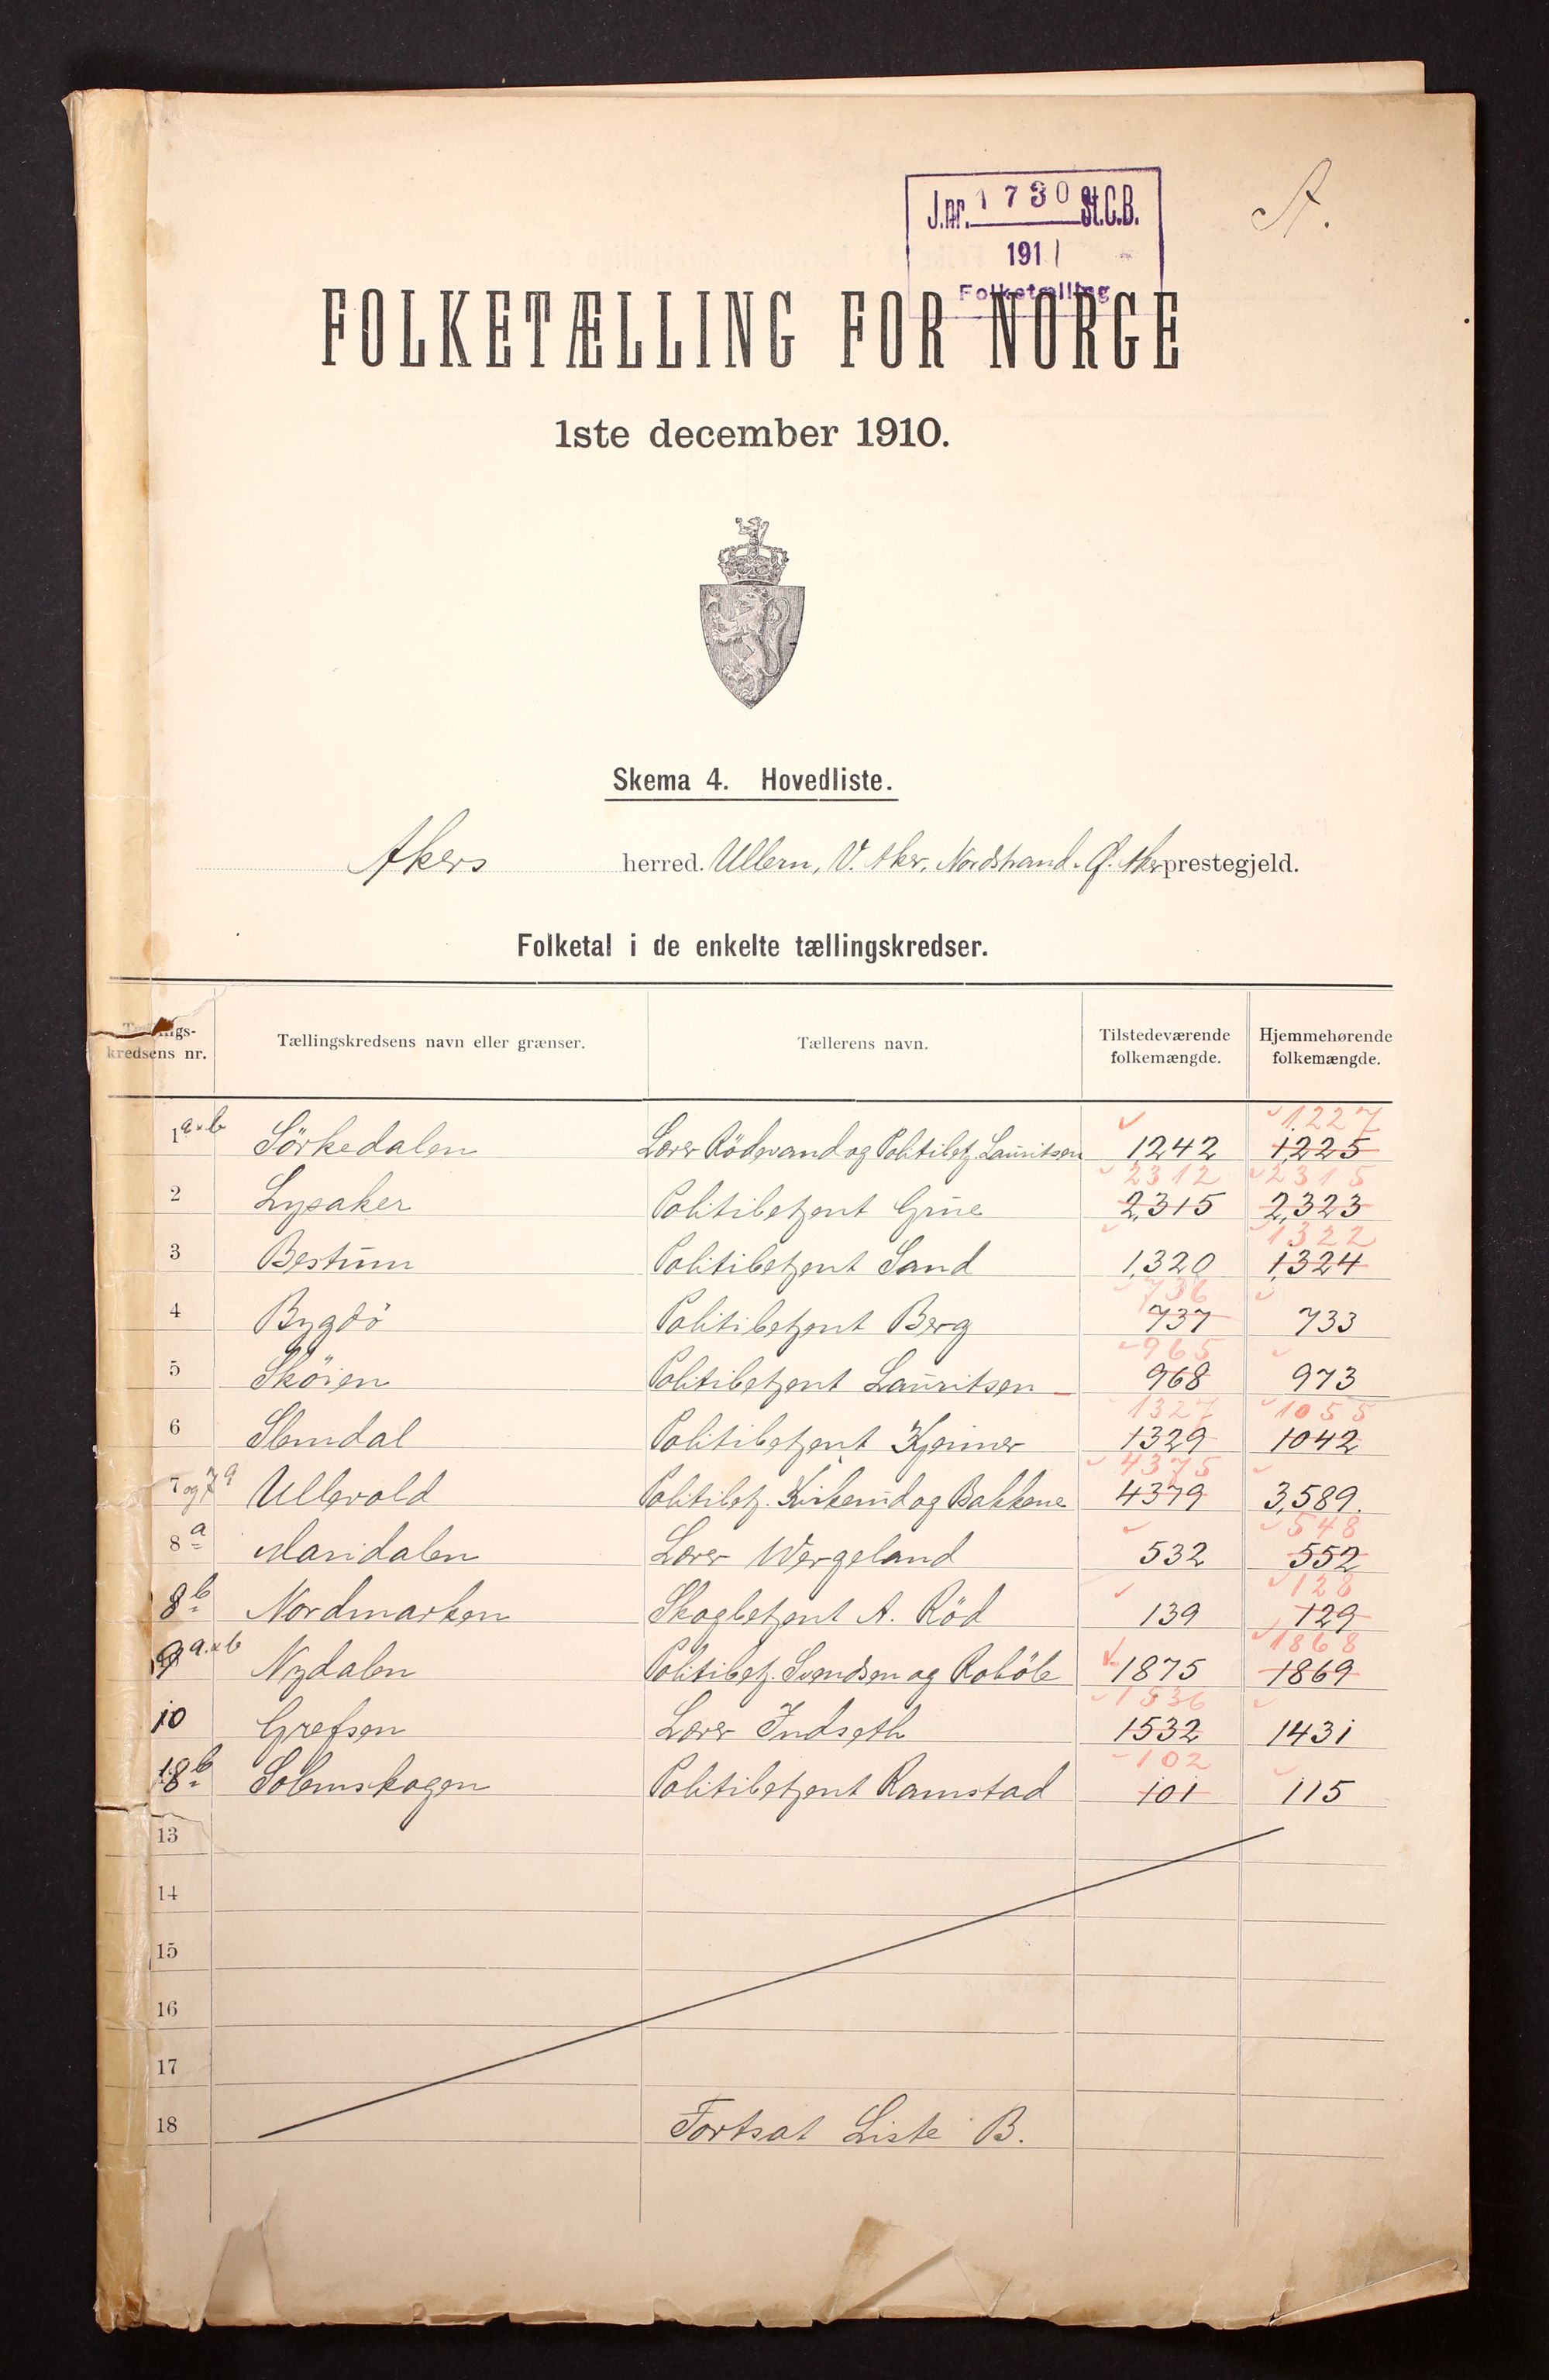 A.
J.nr. 1730 St.C.B.
1911
Folketælling
FOLKETÆLLING FOR NORGE
1ste december 1910.
Skema 4. Hovedliste.
Akers herred. Ullern, V. Aker, Nordstrand. Ø. Aker prestegjeld.
Folketal i de enkelte tællingskredser.
Tællings-kredsens nr. Tællingskredsens navn eller grænser. Tællerens navn. Tilstedeværende folkemængde. Hjemmehørende folkemængde.
1227
1 a×b Sörkedalen Lærer Rödevand og Politibetj. Lauritsen 1242 1,225
2312 2315
2 Lysaker Politibetjent Grüe 2,315 2,323
1322
3 Bestum Politibetjent Sand 1,320 1,324
736
4 Bygdö Politibetjent Berg 737 733
965
5 Sköien Politibetjent Lauritsen 968 973
1327 1055
6 Slemdal Politibetjent Kjenner 1329 1042
4375
7 og 7a Ullevold Politibetj. Kirkerud og Bakkene 4379 3,589.
548
8a Maridalen Lærer Wergeland 532 552
128
8b Nordmarken Skogbetjent A. Röd 139 129
1868
9 a×b Nydalen Politibetj. Svendsen og Roböle 1875 1869
1536
10 Grefsen Lærer Indseth 1532 1431
102
18b Solemskogen Politibetjent Ramstad 101 115
13
14
15
16
17
18 Fortsat Liste B.